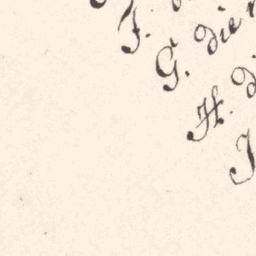 F.
G. die
H. d
J